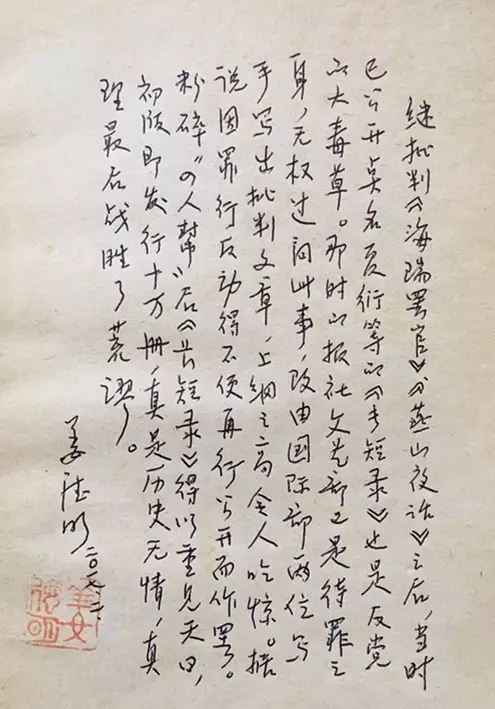 继批判《海瑞罢官》《燕山夜话》之后，当时
已公开点名夏衍等的《长短录》也是反党
的大毒草。那时的报社文艺部已是待罪之
身，无权过问此事，改由国际部两位写
手写出批判文章，上纲之高令人吃惊。据
说因罪行反动得不便再行公开而作罢。
粉碎“四人幫”后《长短录》得以重见天日，
初版即发行十万册，真是历史无情，真
理最后战胜了荒谬。
姜德明
二〇一七
姜德明